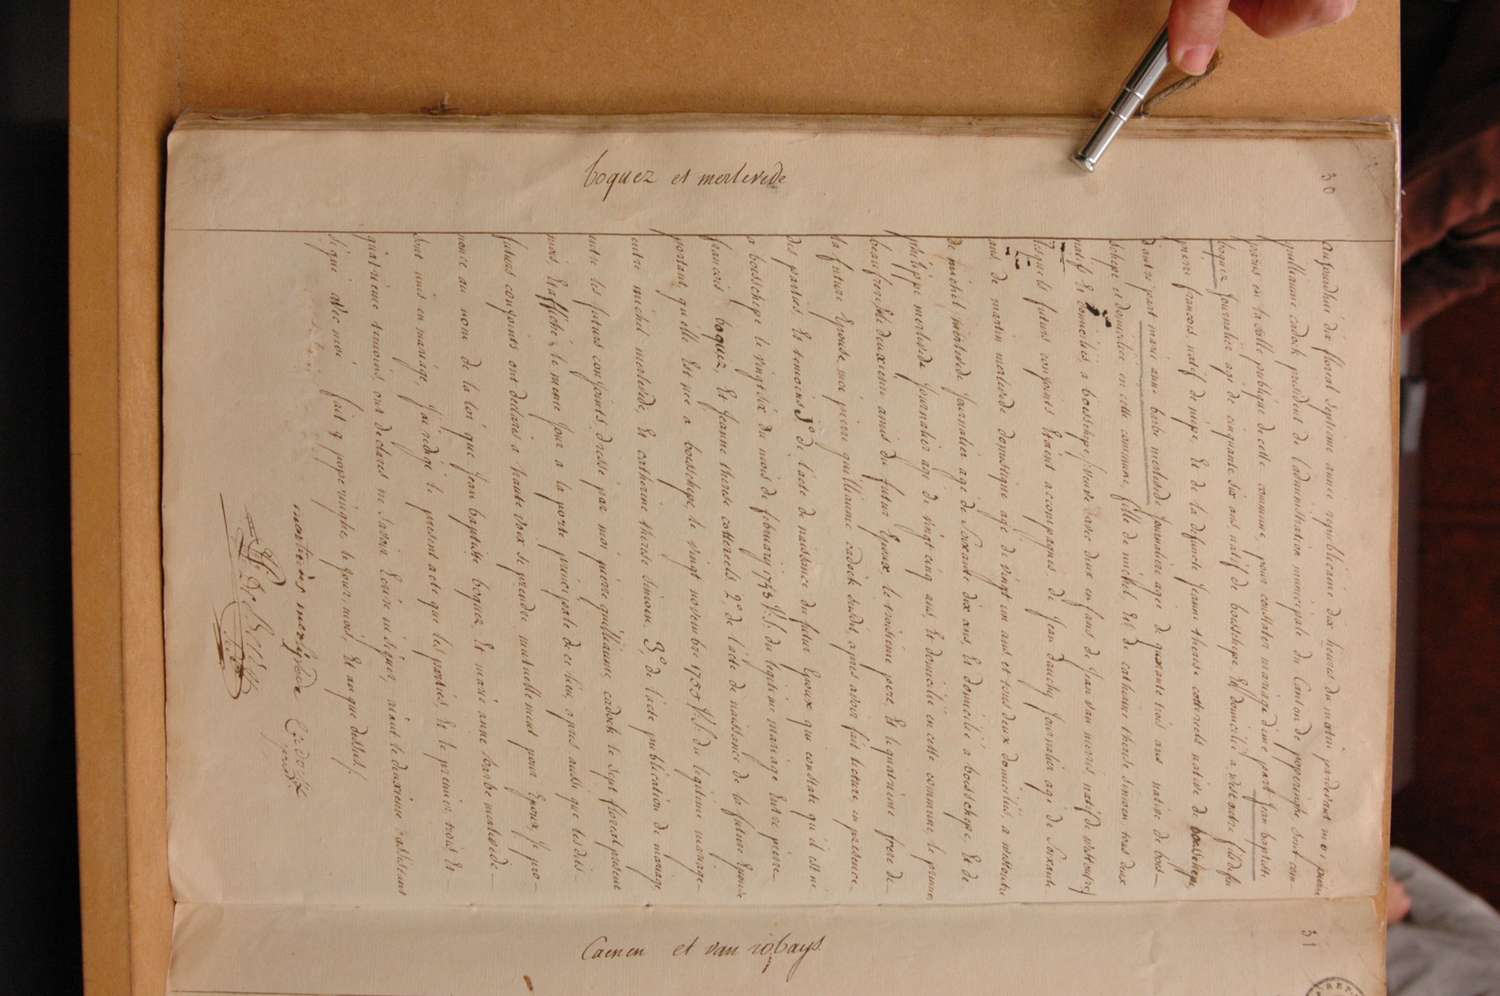 boquez et merlevede
30
aujourdhui dix floreal septieme année republicaine dix heures du matin pardevant moi pierre
guilliaume cadock president de l'administration municipale du Canton de poperinghe, sont com-
parus en la salle publique de cette commune, pour constater mariage d'une part jean baptiste
boquez journalier agé de cinquante six ans natif de boeschepe Et domicilié a westoutre fils de feu
pierre françois, natif de nieppe, Et de la defunte Jeanne therese cottereels native de boeschepe
d'autre part marie anne barbe merlevede journaliere agée de quarante trois ans native de boes-
chepe et domiciliée en cette commune, fille de michel, Et de catharine therese simoen tous deux
natifs Et domiciliés a boeschepe, veuve avec deux enfans de jean van meris natif de westoutre
lesquels futurs conjoints Etaient accompagnés de Jean journalier agé de soixante
ans, de martin merlevede domestique agé de vingt un ans et tous deux domiciliés a westoutre
de michel merlevede journalier agé de soixante dix ans, Et domicilié a boeschepe, Et de
philippe merlevede journalier agé de vingt cinq ans, Et domicilié en cette commune, le premier
beaufrere Et deuxieme amis du futur Epoux le troisieme pere, Et le quatrieme frere de
la future Epouse, moi pierre guilliaume cadock susdit, apres avoir fait lecture en presence
des parties, Et temoins 1º de l'acte de naissance du futur Epoux qui constate qu'il est né
a boeschepe le vingt six du mois de february 1743 V.S. du legitime mariage Entre pierre
francois boquez, Et Jeanne therese cottereels 2º de l'acte de naissance de la future Epouse
portant qu'elle Est née a boeschepe, le vingt novembre 1755 V.S. du legitime mariage
entre michel merlevede, Et catherine therese simoen, 3º de l'acte publication de mariage
entre les futurs conjoints dressé par moi pierre guilliaume cadock le sept floreal present
mois, Et affiché le meme jour a la porte principale de ce lieu, apres aussi que lesdits
futurs conjoints ont declaré a haute voix se prendre mutuellement pour Epoux, Je pro-
nonce au nom de la loi que Jean baptiste boquez, Et marie anne barbe merlevede
sont unis en mariage, J'ai redigé le present acte que les parties, Et le premier, trois Et
quatrieme temoins, ont declaré ne savoir Ecrire ni signer, aiant le deuxieme attestans
signé avec moi fait a poperinghe, le jour, mois, Et an que dessus/.
martinus merlevede
Cadock
presidt
Caenen et van robays
31